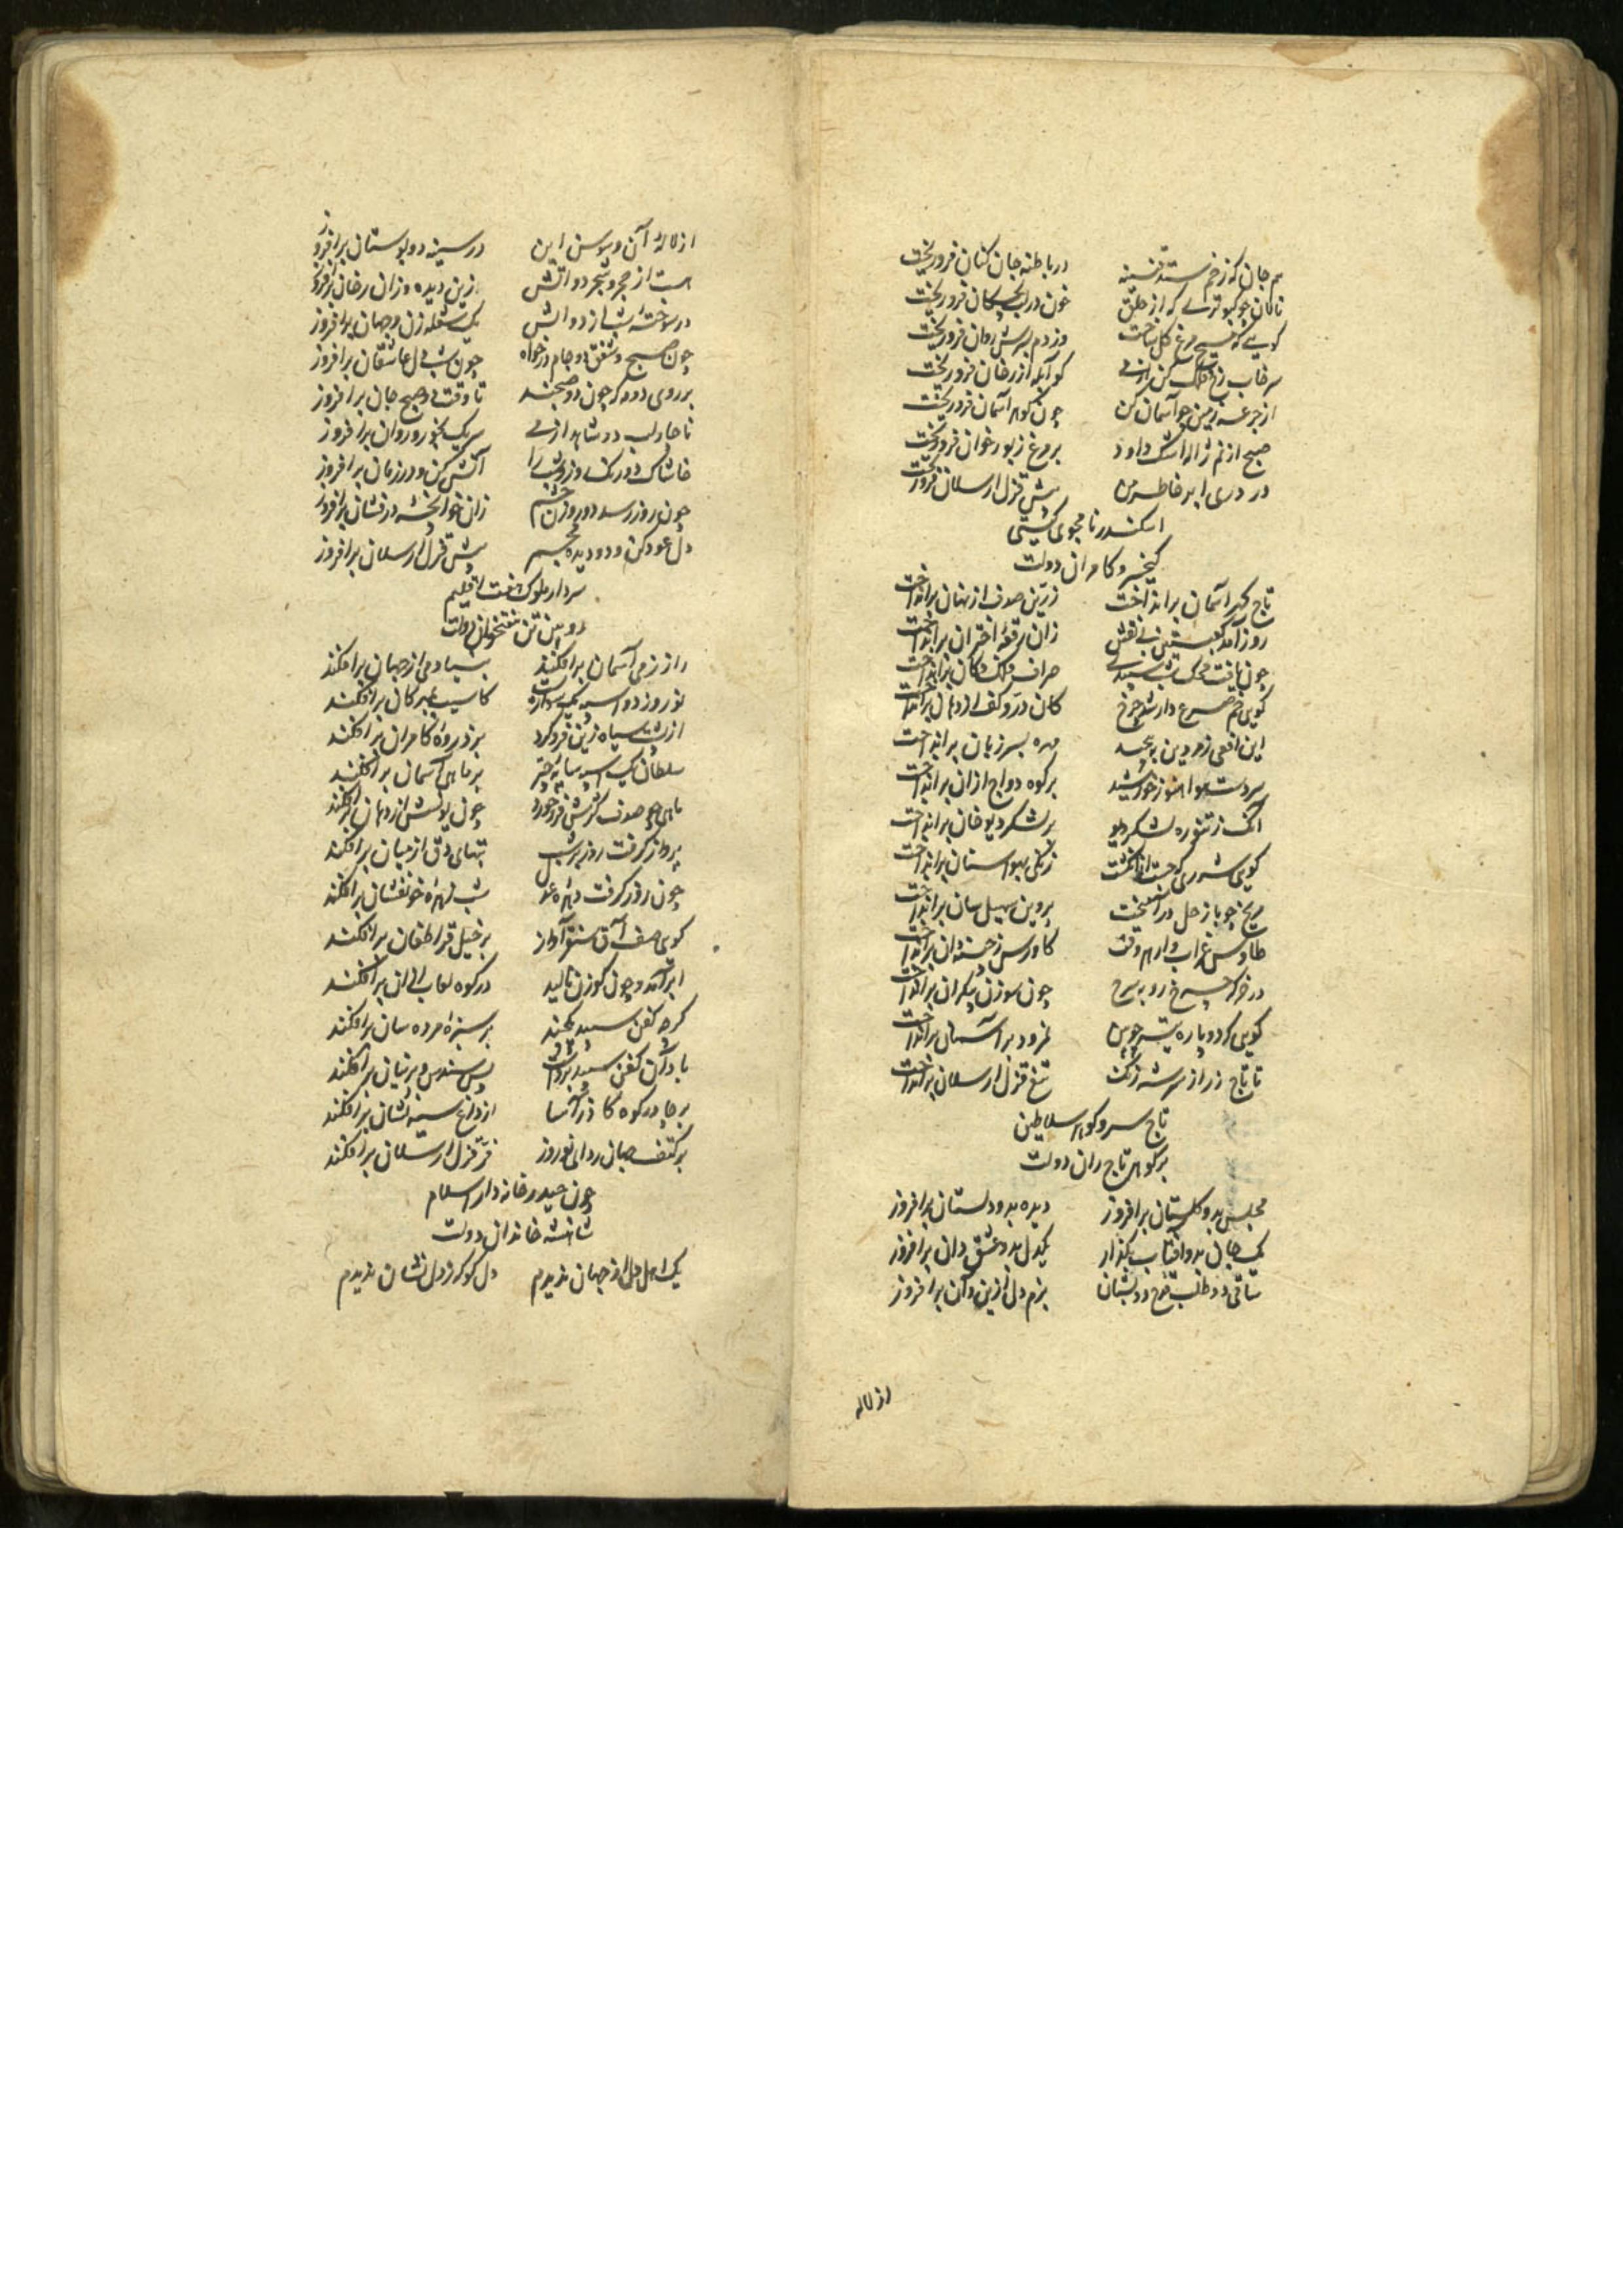 هم جان که زخم ستد قنینه درباطیه جان کنان فرو ریخت
نالان چو کبوتری که از حلق خون در لب بچکان فرو ریخت
گویی که مسیح مرغ گل ساخت وز دم بسرش روان فرو ریخت
سرخاب رخ فلک کن از می کو آبله از رخان فرو ریخت
از جرعه زمین چو آسمان کن چون گوهر آسمان فرو ریخت
صبح از نم ژاله اشک داود بر مرغ زبور خوان فرو ریخت
در دری ابر خاطر من پیش قزل ارسلان فرو ریخت
اسکندر نامجوی گیتی
کیخسرو کامران دولت
تاج گهر آسمان برانداخت زرین صدف از نهان برانداخت
روز آمد کعبتین بی نقش زان رقعه اختران برانداخت
چون یافت محک شب سپیدی صراف فلک دکان برانداخت
گویی خم صرع دار شد چرخ کان زرد کف از دهان برانداخت
این افعی زمردین به مهره بسر زبان برانداخت
سردست هوا هنوز خورشید بر کوه دواج از آن برانداخت
آنک ز تنوره لشکر دیو بر لشکر دیوخان برانداخت
گویی شرری که جست از انگشت زنگی بهوا سنان برانداخت
مریخ چو با زحل درآمیخت پروین سهیل سان برانداخت
طاوس غراب دار هر وقت گاورس ز حسنه دان برانداخت
در خرگه چرخ روبه سرخ چون سوزن بیکران برانداخت
گویی که دوباره تیر خونین نمرود بر آسمان برانداخت
تا تاج زر از سر شه زنگ تیغ قزل ارسلان برانداخت
تاج سر و گوهر سلاطین
بر گوهر تاج ران دولت
مجلس بدو گلستان برافروز دیده بدو دلستان برافروز
یک جان بدو آفتاب بگذار یکدل بدو عشق دان برافروز
ساقی دو طلب قدح دو بستان بزم دل ازین و آن برافروز
از لاله
از لاله آن و سوسن این در سینه دو بوستان برافروز
هست از حجر و شجر دو آتش زین دیده و زان رخان برافروز
در سوخته شب از دو آتش یک شعله زن و جهان برافروز
چون صبح و شفق دو جام درخواه چون شب دل عاشقان برافروز
بر روی دو مه که چون دو صبحند تا وقت دو صبح جان برافروز
تا چار لب دو شاهد از می سر یک بخور و روان برافروز
خاشاک دو رنگ روز و شب را آتش کن و در زمان برافروز
چون روز رسد دو روزن چشم زان خوانچه زرفشان برافروز
دل عود کن و دو دیده مجمر پیش قزل ارسلان برافروز
سردار ملوک هفت اقلیم
رویین تن هفتخوان دولت
راز زمی آسمان برافکند بنیاد دی از جهان برافکند
نوروز دو اسبه یک سواره است کاسیب بمهرگان برافکند
از پشت سیاه زین فرو کرد بر زرده کامران برافکند
سلطان یک اسبه سایه چتر بر ماهی آسمان برافکند
ماهی چو صدف گرش فرو خورد چون یونسش از دهان برافکند
پرواز گرفت روز بر شب تبهای دق از میان برافکند
چون روز گرفت شب زهره خونفشان برافکند
گویی صف آق سنقر آواز بر خیل قراطغان برافکند
ابر آمد و چون گوزن نالید بر کوه لعاب از آن برافکند
گر چه کفن سپید بفکند بر سبزه مرده سان برافکند
باد آن کفن سپید برداشت پس سندس و پرنیان برافکند
بر چادر کوه گازر آسا از داغ سیه نشان برافکند
بر کتف جهان ردای نوروز فر قزل ارسلان برافکند
چون حیدر خانه دار اسلام
شاهنشه خاندان دولت
یک اهل دل از جهان ندیدم دل کو که ز دل نشان ندیدم